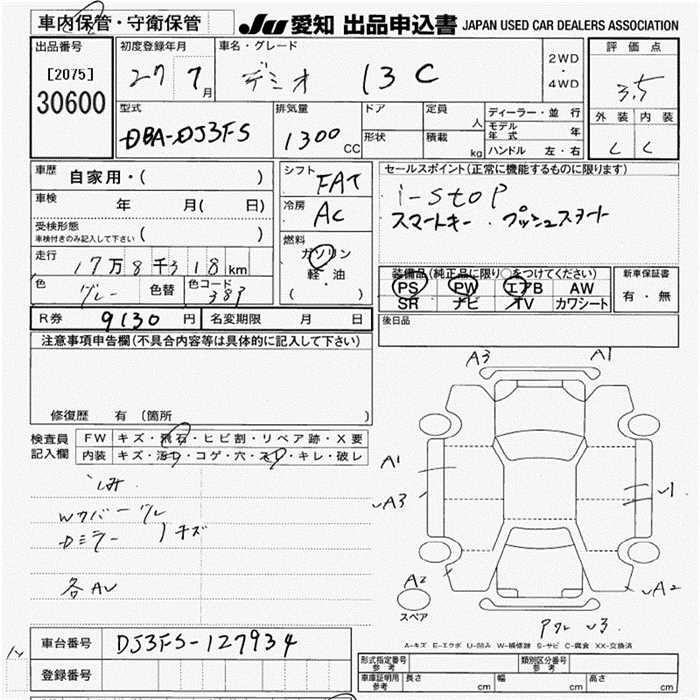 車内保管・守衛保管
JU 愛知 出品申込書 JAPAN USED CAR DEALERS ASSOCIATION
出品番号
[2075]
30600
初度登録年月
27 7月
車名・グレード
デミオ 13C
2WD
・
4WD
評価点
3.5
外装 内装
C C
型式
DBA-DJ3FS
排気量
1300 CC
ドア
形状
定員 人
積載 kg
ディーラー・並行
モデル年式 年
ハンドル 左・右
車歴 自家用・( )
車検 年 月( 日)
受検形態
車検付きのみ記入して下さい ( )
走行 17万8千318km
色 グレー 色替 色コード 383
シフト
FAT
冷房
AC
燃料
ガソリン
軽・油
( )
セールスポイント(正常に機能するものに限ります)
i-stop
スマートキー・プッシュスタート
装備品(純正品に限り○をつけてください)
PS PW エアB AW
SR ナビ TV カワシート
新車保証書
有・無
後日品
R券 9130円 名変期限 月 日
注意事項申告欄(不具合内容等は具体的に記入して下さい)
修復歴 有(箇所 )
検査員
記入欄
FW キズ・飛石・ヒビ割・リペア跡・X要
内装 キズ・汚れ・コゲ・穴・スレ・キレ・破レ
しみ
Wカバーグレ
Dミラー 〃 キズ
各AU
A3 A1
A1
UA3
U1
A2
UA2
スペア
U3
A-キズ E-エクボ U-凹み W-補修跡 S-サビ C-腐食 XX-交換済
車台番号 DJ3FS-127934
登録番号
形式指定番号
参考
類別区分番号
参考
車庫証明用
参考
長さ cm 幅 cm 高さ cm